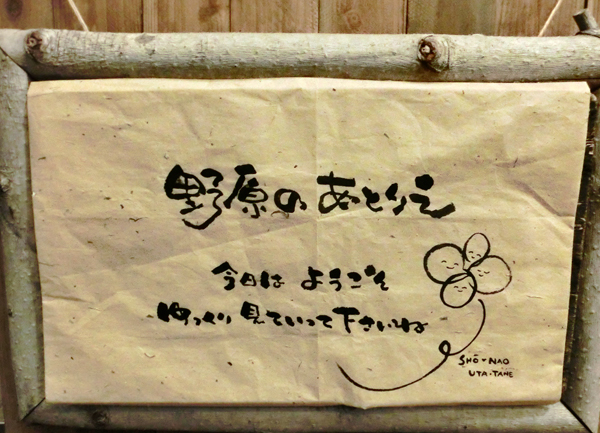 野原のあとりえ
今日は ようこそ
ゆっくり 見ていって下さいね
SHŌ-NAO
UTA・TANE